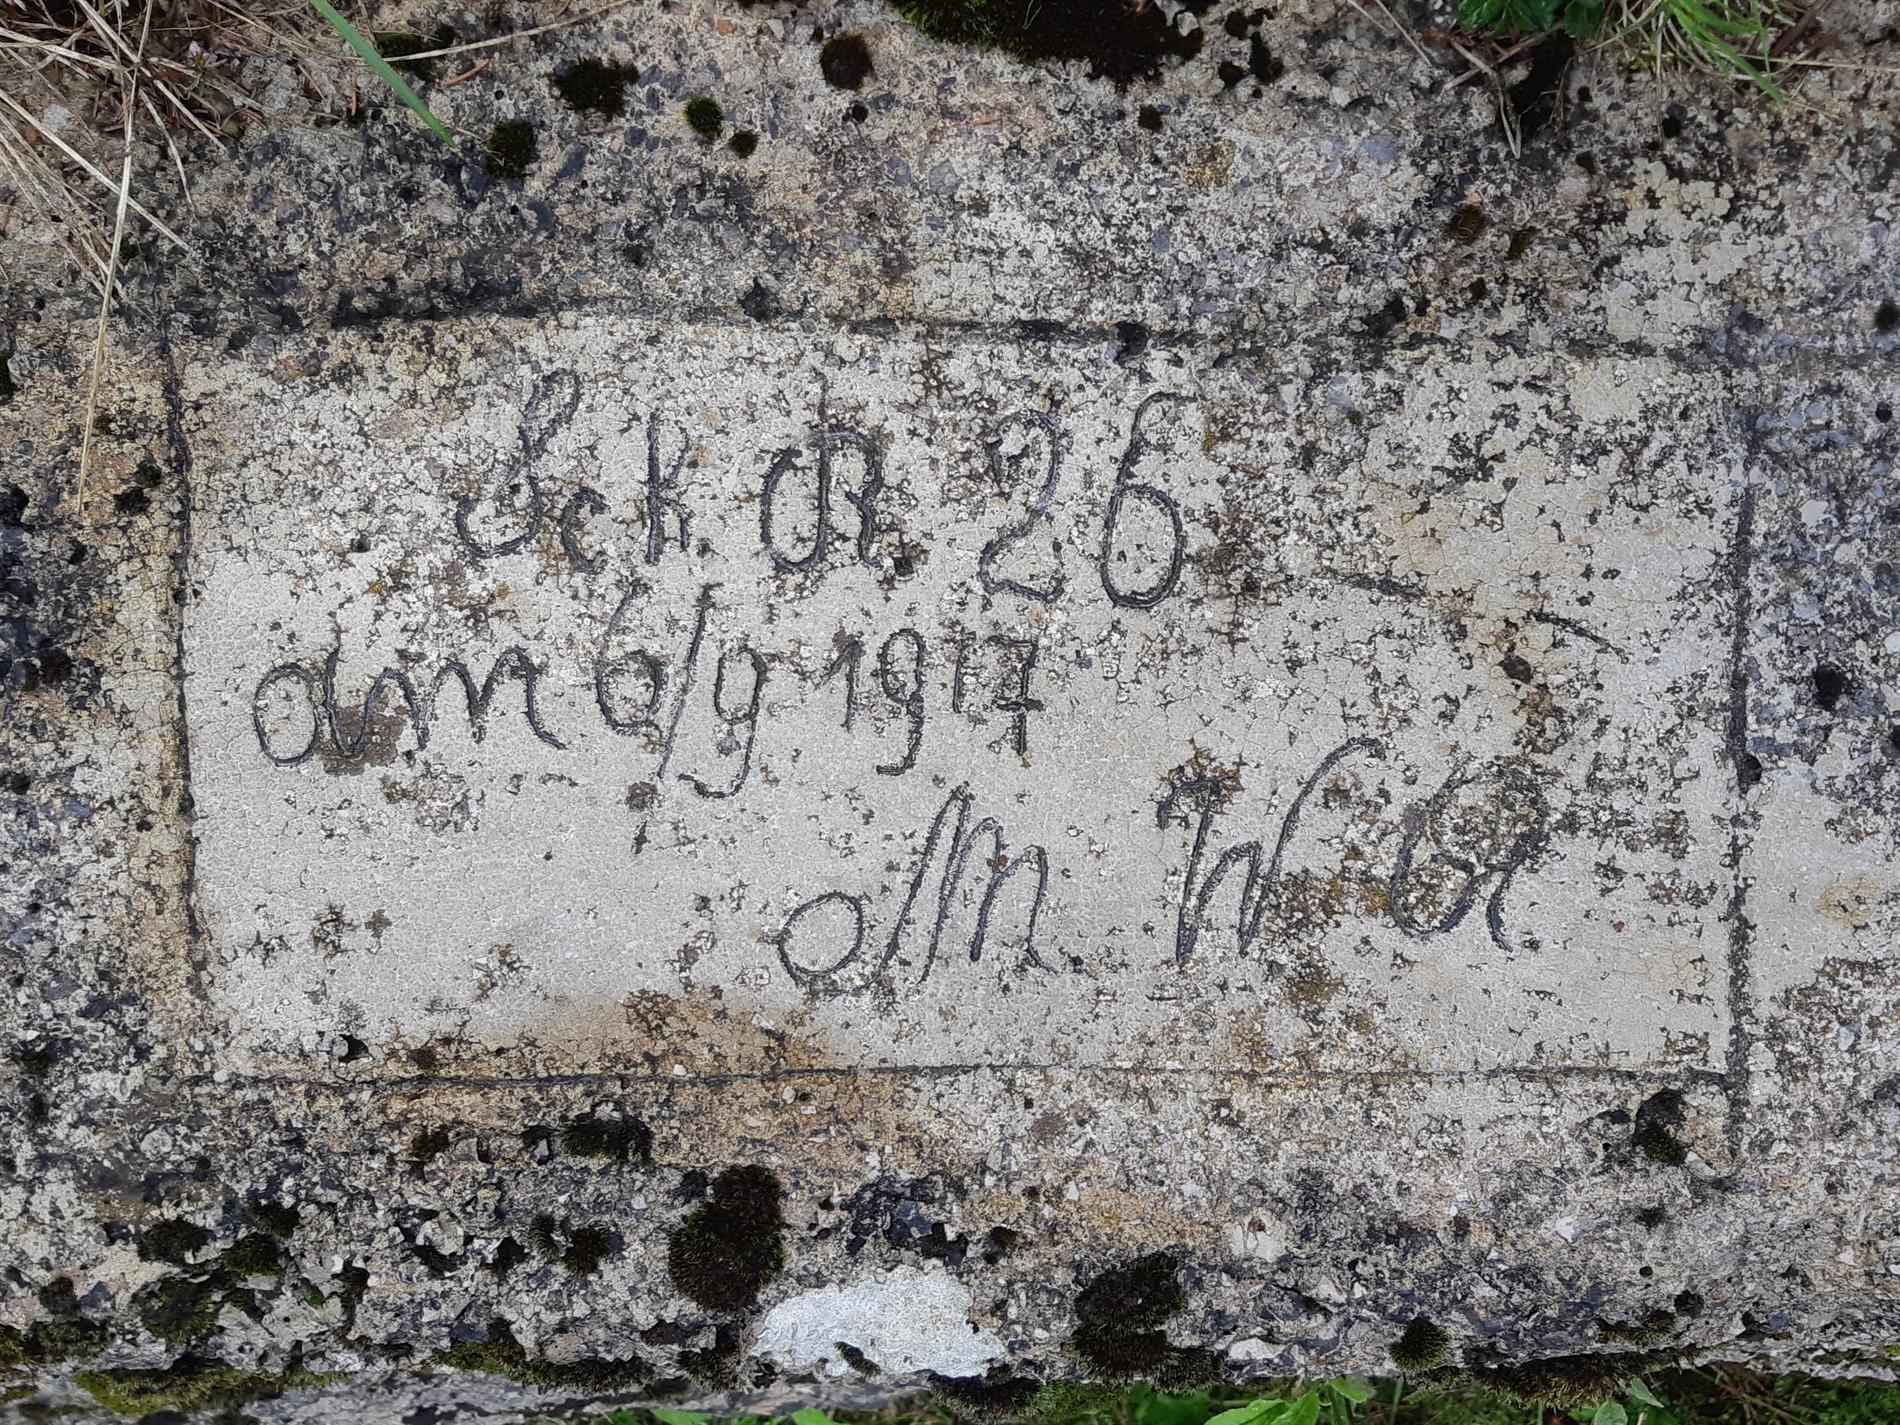 Sek. R 26
am 6/9 1917
M W R